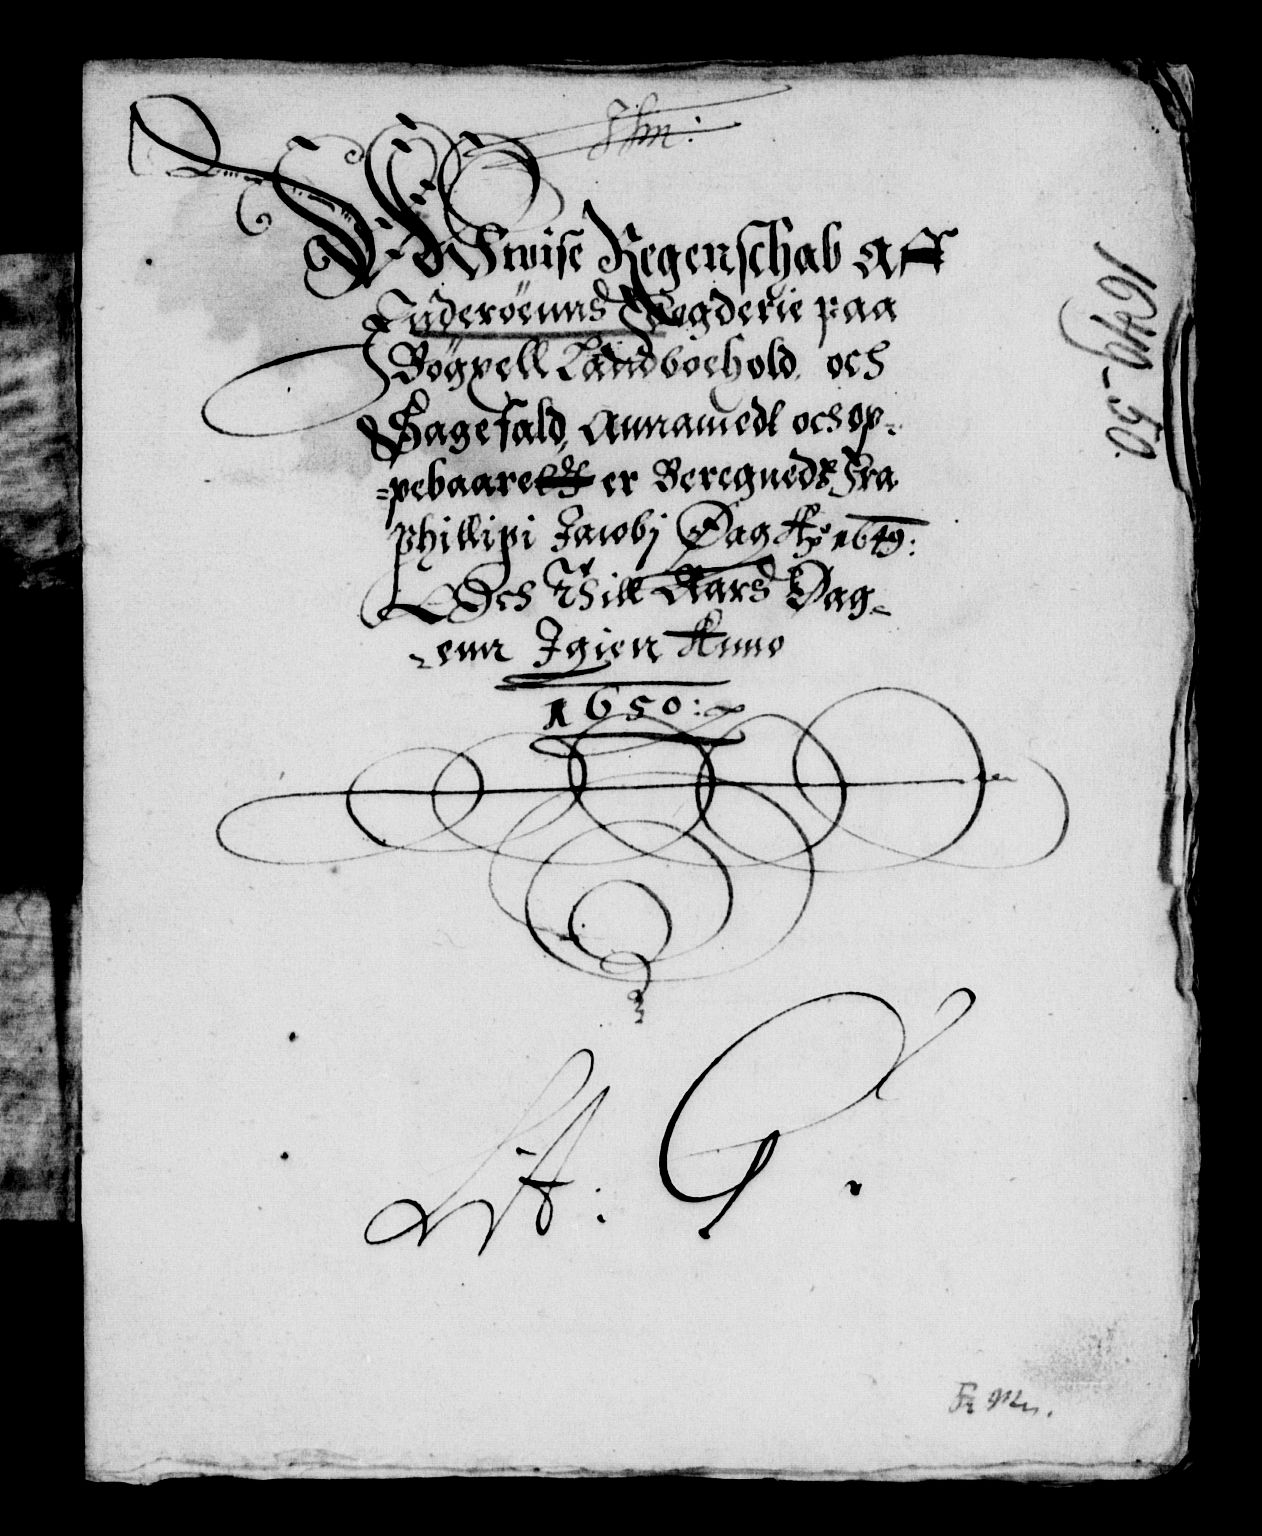 Wnvise Regenschab aff
Inderöenns Fogderie paa
Bögxell Landboehold, och
Sagefald, Annamedt och op-
=pebaaret er Beregnedt Fra
Phillipi Jacobj Dag Ao 1649:
Och Thill Aars Dag-
-enn Igien Anno
1650:
Lit: G.
1649-50.